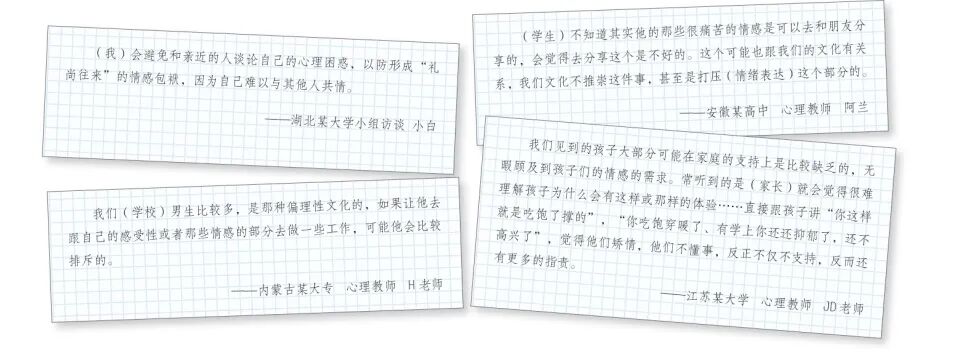 （我）会避免和亲近的人谈论自己的心理困惑，以防形成“礼
尚往来”的情感包袱，因为自己难以与其他人共情。
——湖北某大学小组访谈 小白
（学生）不知道其实他的那些很痛苦的情感是可以去和朋友分
享的，会觉得去分享这个是不好的。这个可能也跟我们的文化有关
系，我们文化不推崇这件事，甚至是打压（情绪表达）这个部分的。
——安徽某高中 心理教师 阿兰
我们（学校）男生比较多，是那种偏理性文化的，如果让他去
跟自己的感受性或者那些情感的部分去做一些工作，可能他会比较
排斥的。
——内蒙古某大专 心理教师 H老师
我们见到的孩子大部分可能在家庭的支持上是比较缺乏的，无
暇顾及到孩子们的情感的需求。常听到的是（家长）就会觉得很难
理解孩子为什么会有这样或那样的体验……直接跟孩子讲“你这样
就是吃饱了撑的”，“你吃饱穿暖了、有学上你还还抑郁了，还不
高兴了”，觉得他们矫情，他们不懂事，反正不仅不支持，反而还
有更多的指责。
——江苏某大学 心理教师 JD老师